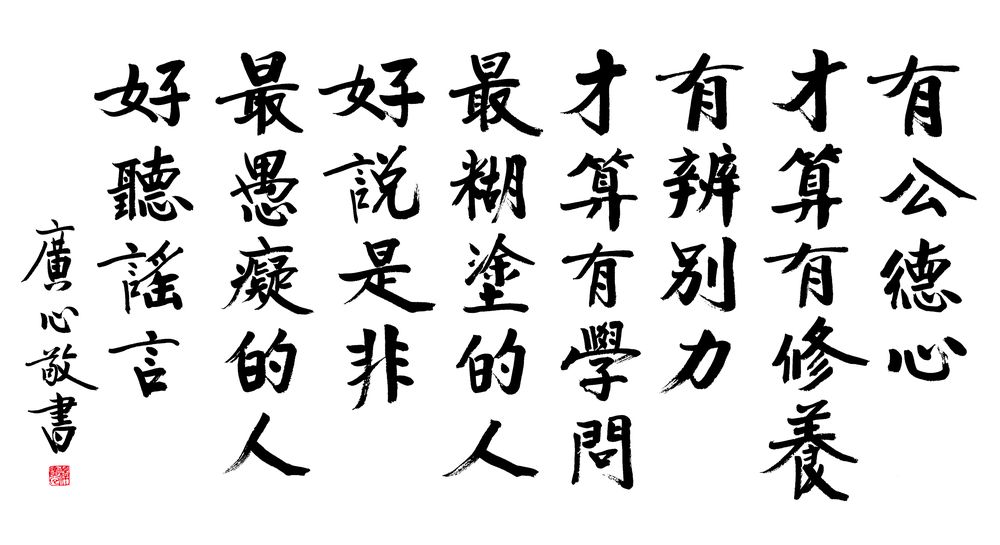 有公德心
才算有修養
有辨別力
才算有學問
最糊塗的人
好説是非
最愚癡的人
好聽謠言
廣心敬書